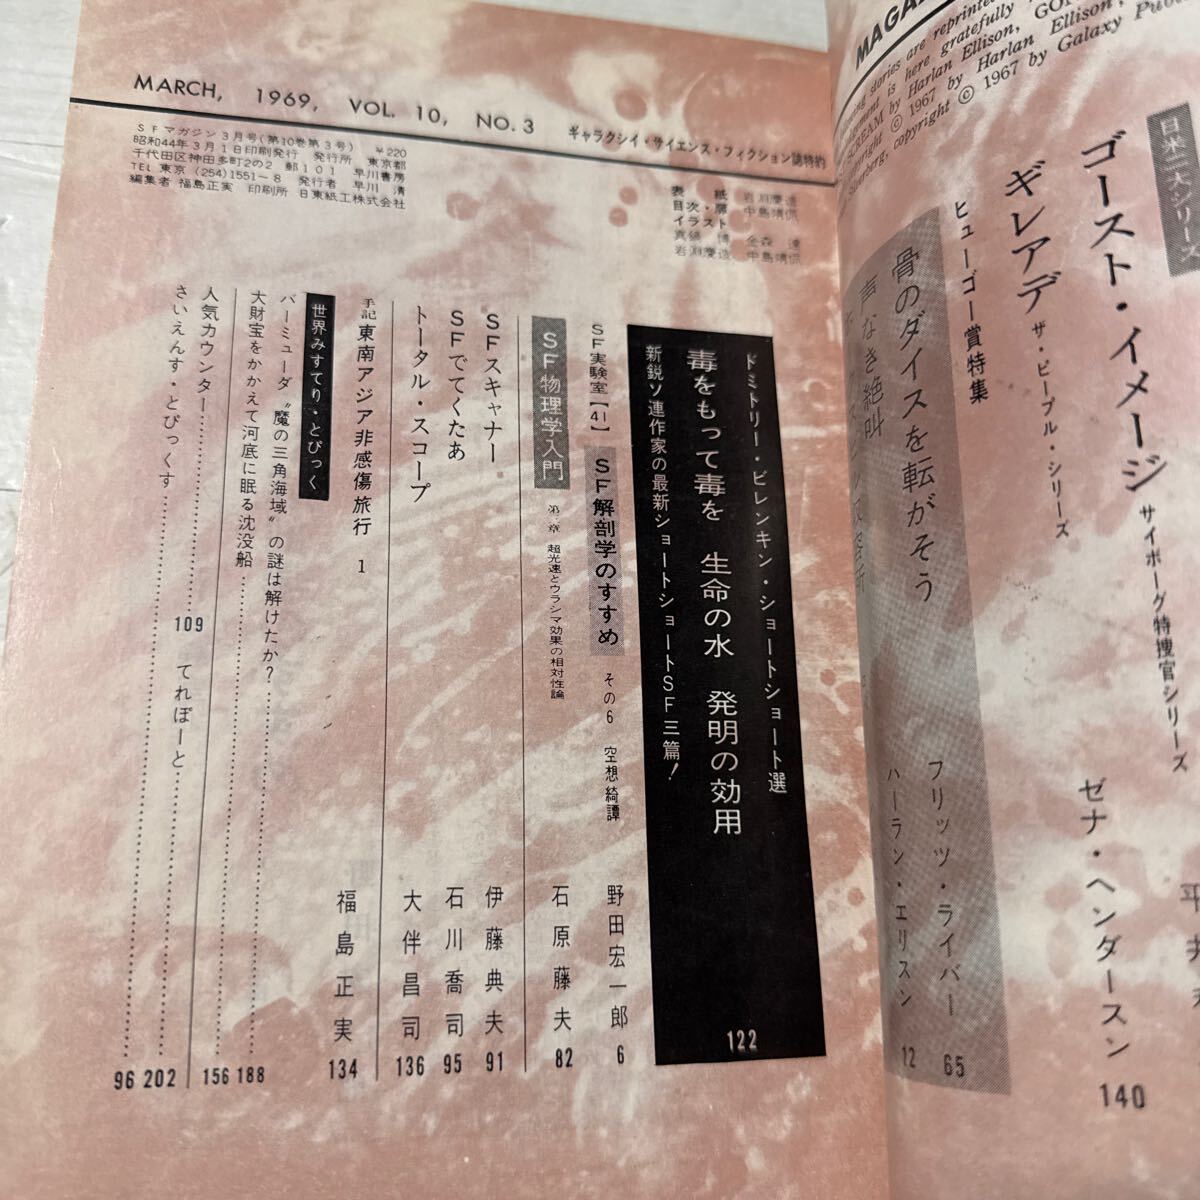 MAGA
ing stories are reprinted
ment is here gratefully
SCREAM by Harlan Ellison,
© 1967 by Harlan Ellison,
Silverberg, copyright © 1967 by Galaxy Pub
日米二大シリーズ
ゴースト・イメージ サイボーグ特捜官シリーズ 平井
ギレアデ ザ・ピープル・シリーズ ゼナ・ヘンダースン 140
ヒューゴー賞特集
骨のダイスを転がそう フリッツ・ライバー 65
声なき絶叫 ハーラン・エリスン 12
MARCH, 1969, VOL. 10, NO. 3 ギャラクシイ・サイエンス・フィクション誌特約
SFマガジン3月号(第10巻第3号) ¥220
昭和44年3月1日印刷発行 発行所 東京都
千代田区神田多町2の2 郵101 早川書房
TEL 東京 (254)1551-8 発行者 早川 清
編集者 福島正実 印刷所 日東紙工株式会社
表紙 岩淵慶造
目次・扉 中島靖侃
イラスト
真鍋博 金森達
岩淵慶造 中島靖侃
ドミトリー・ビレンキン・ショートショート選
毒をもって毒を 生命の水 発明の効用 122
新鋭ソ連作家の最新ショートショートSF三篇!
SF実験室【41】 SF解剖学のすすめ その6 空想綺譚 野田宏一郎 6
SF物理学入門 第二章 超光速とウラシマ効果の相対性論 石原藤夫 82
SFスキャナー 伊藤典夫 91
SFでてくたあ 石川喬司 95
トータル・スコープ 大伴昌司 136
手記 東南アジア非感傷旅行 1 福島正実 134
世界みすてり・とぴっく
バーミューダ〝魔の三角海域〟の謎は解けたか? 188
大財宝をかかえて河底に眠る沈没船 156
人気カウンター 109 てれぽーと 202
さいえんす・とぴっくす 96